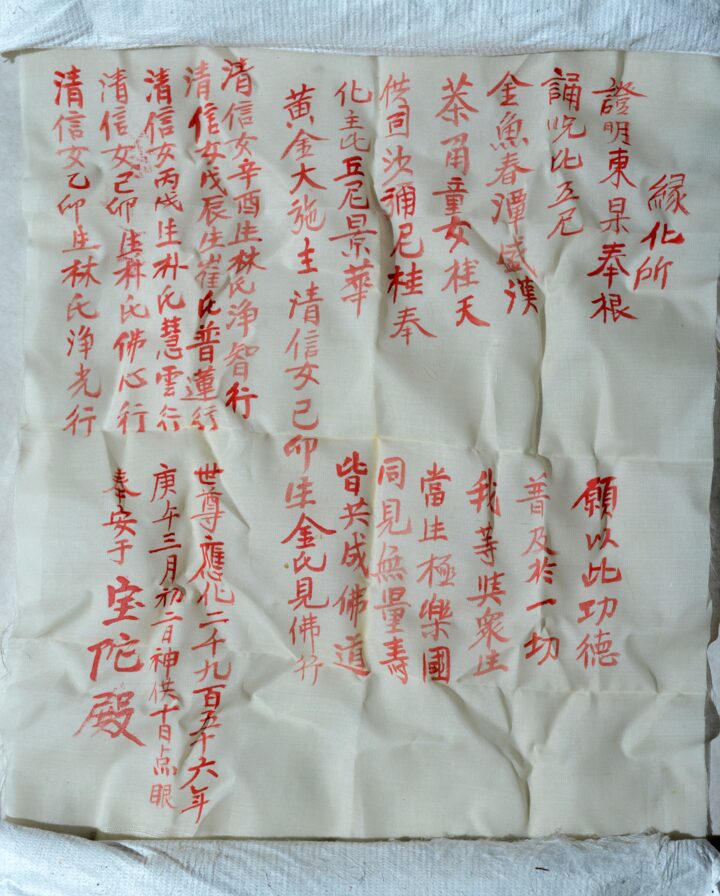 縁化所
證明東杲奉根
誦呪比丘尼
金魚春潭盛漢
茶角童女桂天
供司沙彌尼桂奉
化主比丘尼景華
黄金大施主清信女己卯生金氏見佛行
清信女辛酉生林氏浄智行
清信女戊辰生崔氏普蓮行
清信女丙戌生朴氏慧雲行
清信女己卯生朴氏佛心行
清信女乙卯生林氏浄光行
願以此功德
普及於一切
我等與衆生
當生極樂國
同見無量壽
皆共成佛道
世尊應化二千九百五十六年
庚午三月初一日神供十日点眼
奉安于宝陀殿